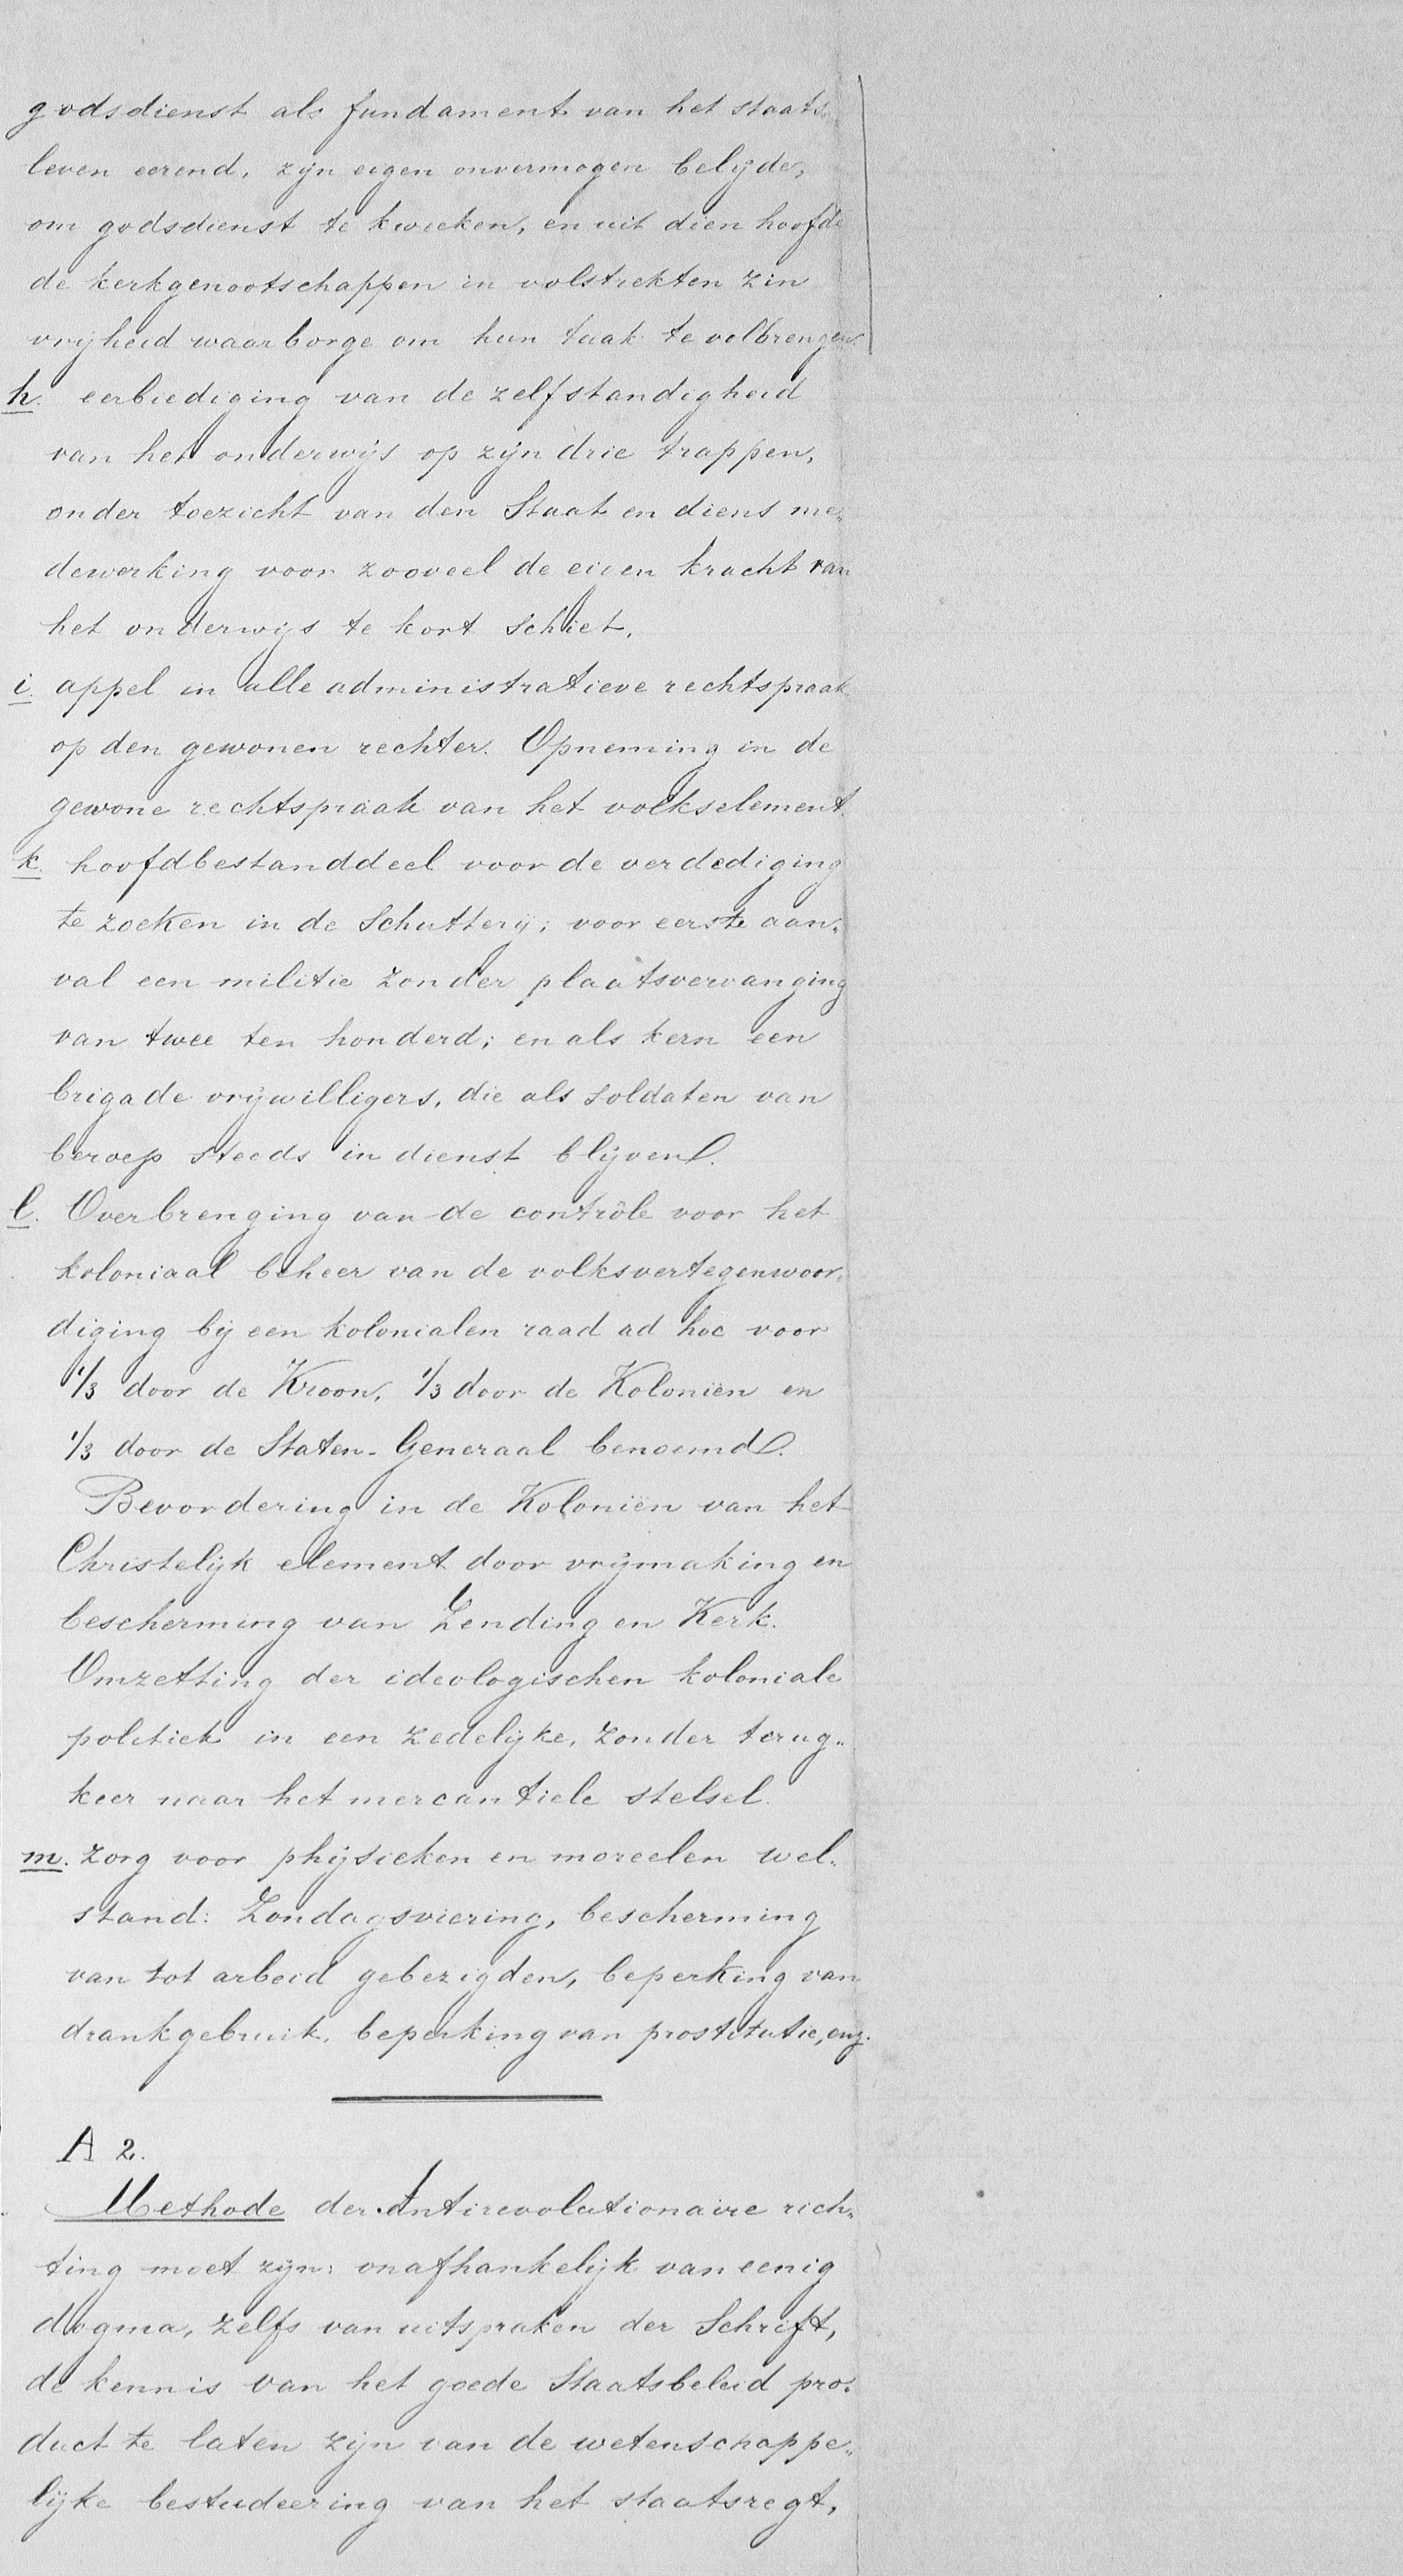 godsdienst als fundament van het staats„
leven eerend, zijn eigen onvermogen belijde,
om godsdienst te kweeken, en uit dien hoofde
de kerkgenootschappen in volstrekten zin
vrijheid waarborge om hun taak te volbrengen.
h. eerbiediging van de zelfstandigheid
van het onderwijs op zijn drie trappen,
onder toezicht van den Staat en diens me„
dewerking voor zooveel de eigen kracht van
het onderwijs te kort schiet.
i. appel in alle administratieve rechtspraak
op den gewonen rechter. Opneming in de
gewone rechtspraak van het volkselement.
k. hoofdbestanddeel voor de verdediging
te zoeken in de Schutterij; voor eerste aan„
val een militie zonder plaatsvervanging
van twee ten honderd; en als kern een
brigade vrijwilligers, die als soldaten van
beroep steeds in dienst blijven.
l. Overbrenging van de contrôle voor het
koloniaal beheer van de volksvertegenwoor„
diging bij een kolonialen raad ad hoc voor
1/3 door de Kroon, 1/3 door de Koloniën en
1/3 door de Staten-Generaal benoemd.
Bevordering in de Koloniën van het
Christelijk element door vrijmaking en
bescherming van Zending en Kerk.
Omzetting der ideologischen koloniale
politiek in een zedelijke, zonder terug„
keer naar het mercantiele stelsel.
m. zorg voor physieken en moreelen wel„
stand: Zondagsviering, bescherming
van tot arbeid gebezigden, beperking van
drankgebruik, beperking van prostitutie, enz.
A 2.
Methode der Antirevolutionaire rich„
ting moet zijn: onafhankelijk van eenig
dogma, zelfs van uitspraken der Schrift,
de kennis van het goede Staatsbeleid pro„
duct te laten zijn van de wetenschappe„
lijke bestudeering van het staatsregt,